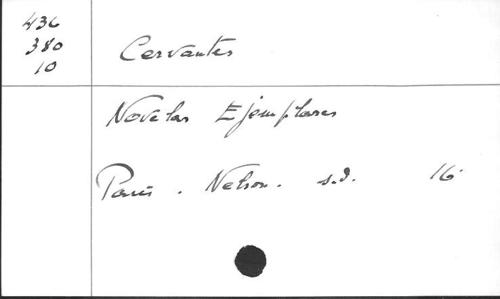 436
380
10
Cervantes
Novelas Ejemplares
Paris . Nelson . s.d. 16